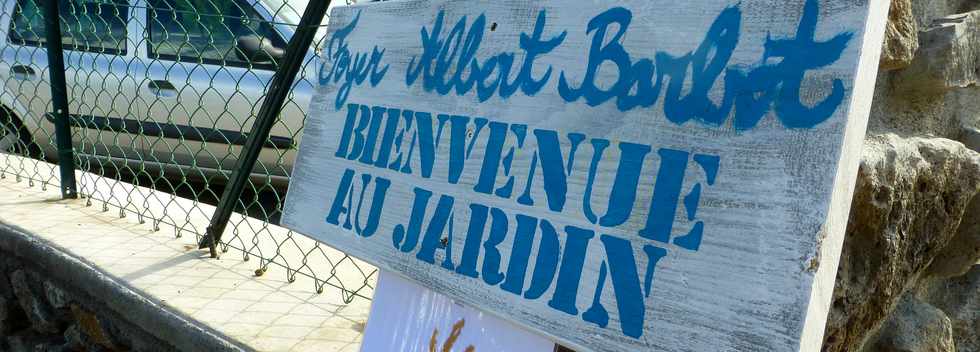 Foyer Albert Barbot
BIENVENUE
AU JARDIN